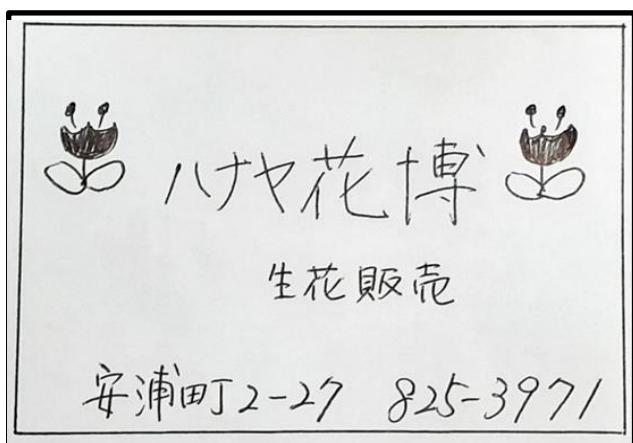 ハナヤ花博
生花販売
安浦町2-27 825-3971